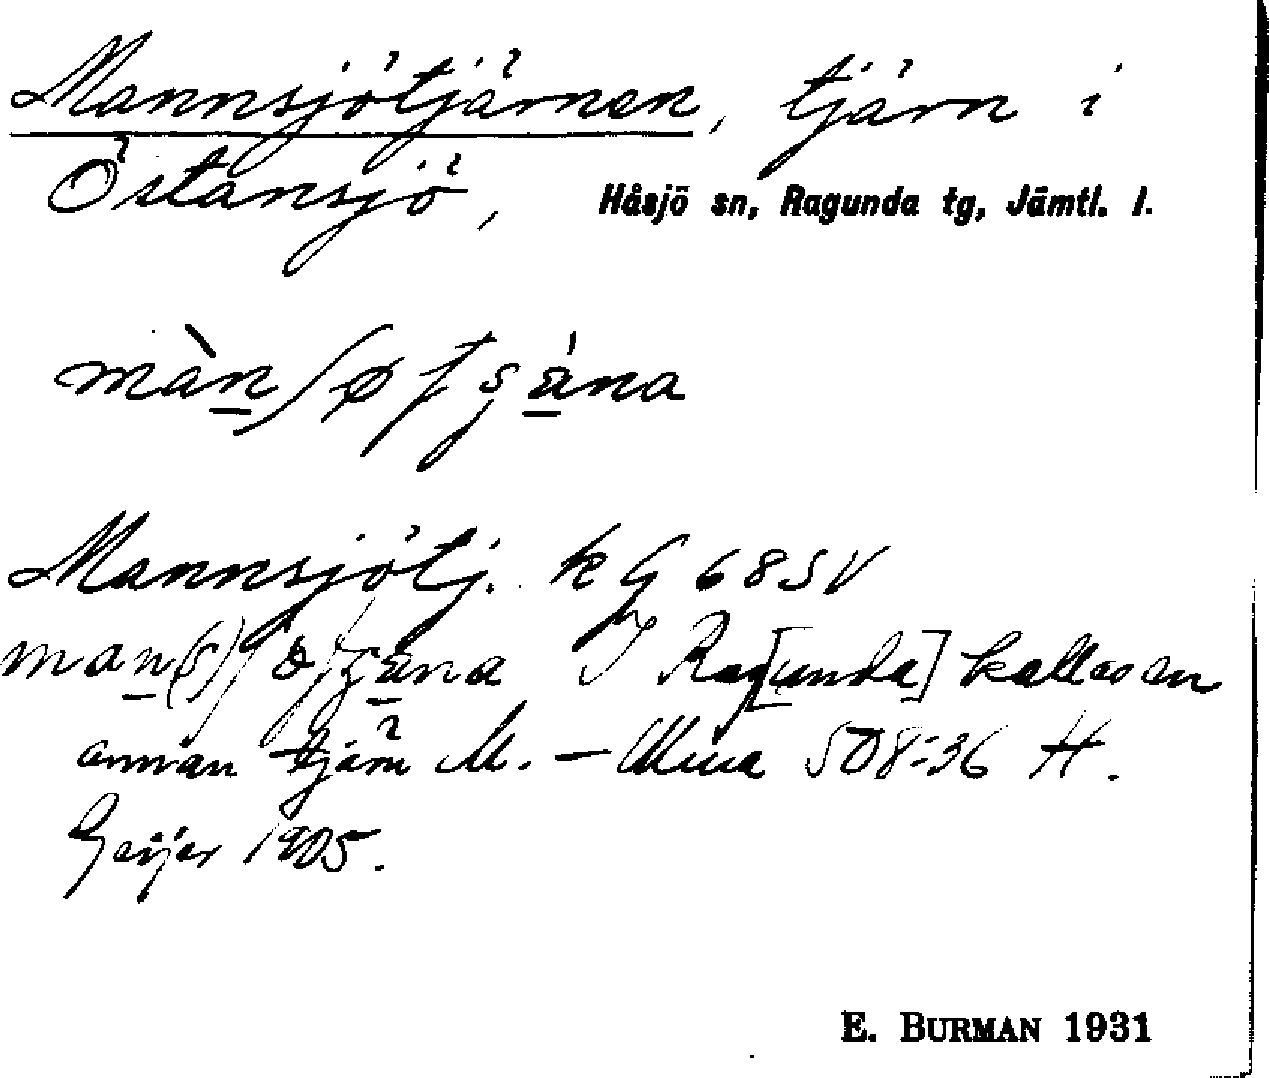 Mannsjötjärnen, tjärn i
Östansjö, Håsjö sn, Ragunda tg, Jämtl. l.
Mannsjötj. k G 68 SV
I Rag[unda] kallas en
annan tjärn M. – 508:36 H.
Geijer 1905.
E. BURMAN 1931